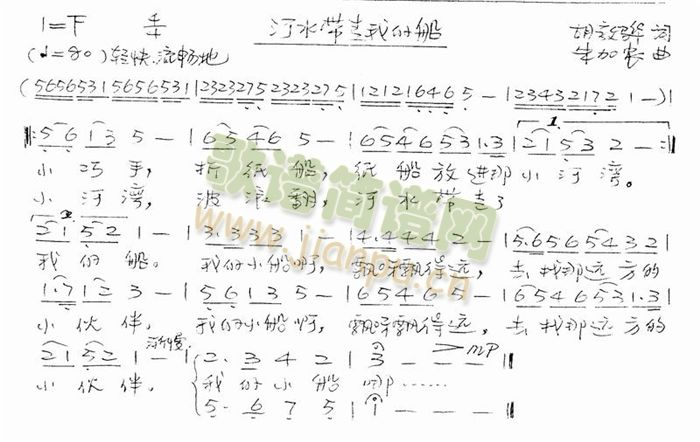 1=F 4/4 河水带走我的船 词
(♩=80) 轻快 流畅地 曲
(56565315 65653 1|23232 75 2323275|12121646 5 - |23432172 1 -)|
‖: 5 6 1 3 5 - |6 5 4 6 5 - |6 5 4 6 5 3 1.3|2 1 5 3 2 - :‖
小 巧 手, 折 纸 船, 纸 船 放 进 那 小 河 湾。
小 河 湾, 波 浪 翻, 河 水 带 走了
2 1 5 2 1 - |3. 3 3 3 1 - |4. 4 4 4 2 - |5. 6 5 6 5 4 3 2|
我 的 船。 我的小船啊, 飘呀飘得远, 去找那远方的
1. 7 1 2 3 - |5 6 1 3 5 - |6 5 4 6 5 - |6 5 4 6 5 3 1.3|
小 伙 伴, 我的小船啊, 飘呀飘得远, 去找那远方的
2 1 5 2 1 - 渐慢 2. 3 4 2 |3 - - > mp ‖
小 伙 伴, 我 的 小 船 啊……
5. 6 7 5 |1 - - - ‖
歌谱简谱网
www.jianpu.cn